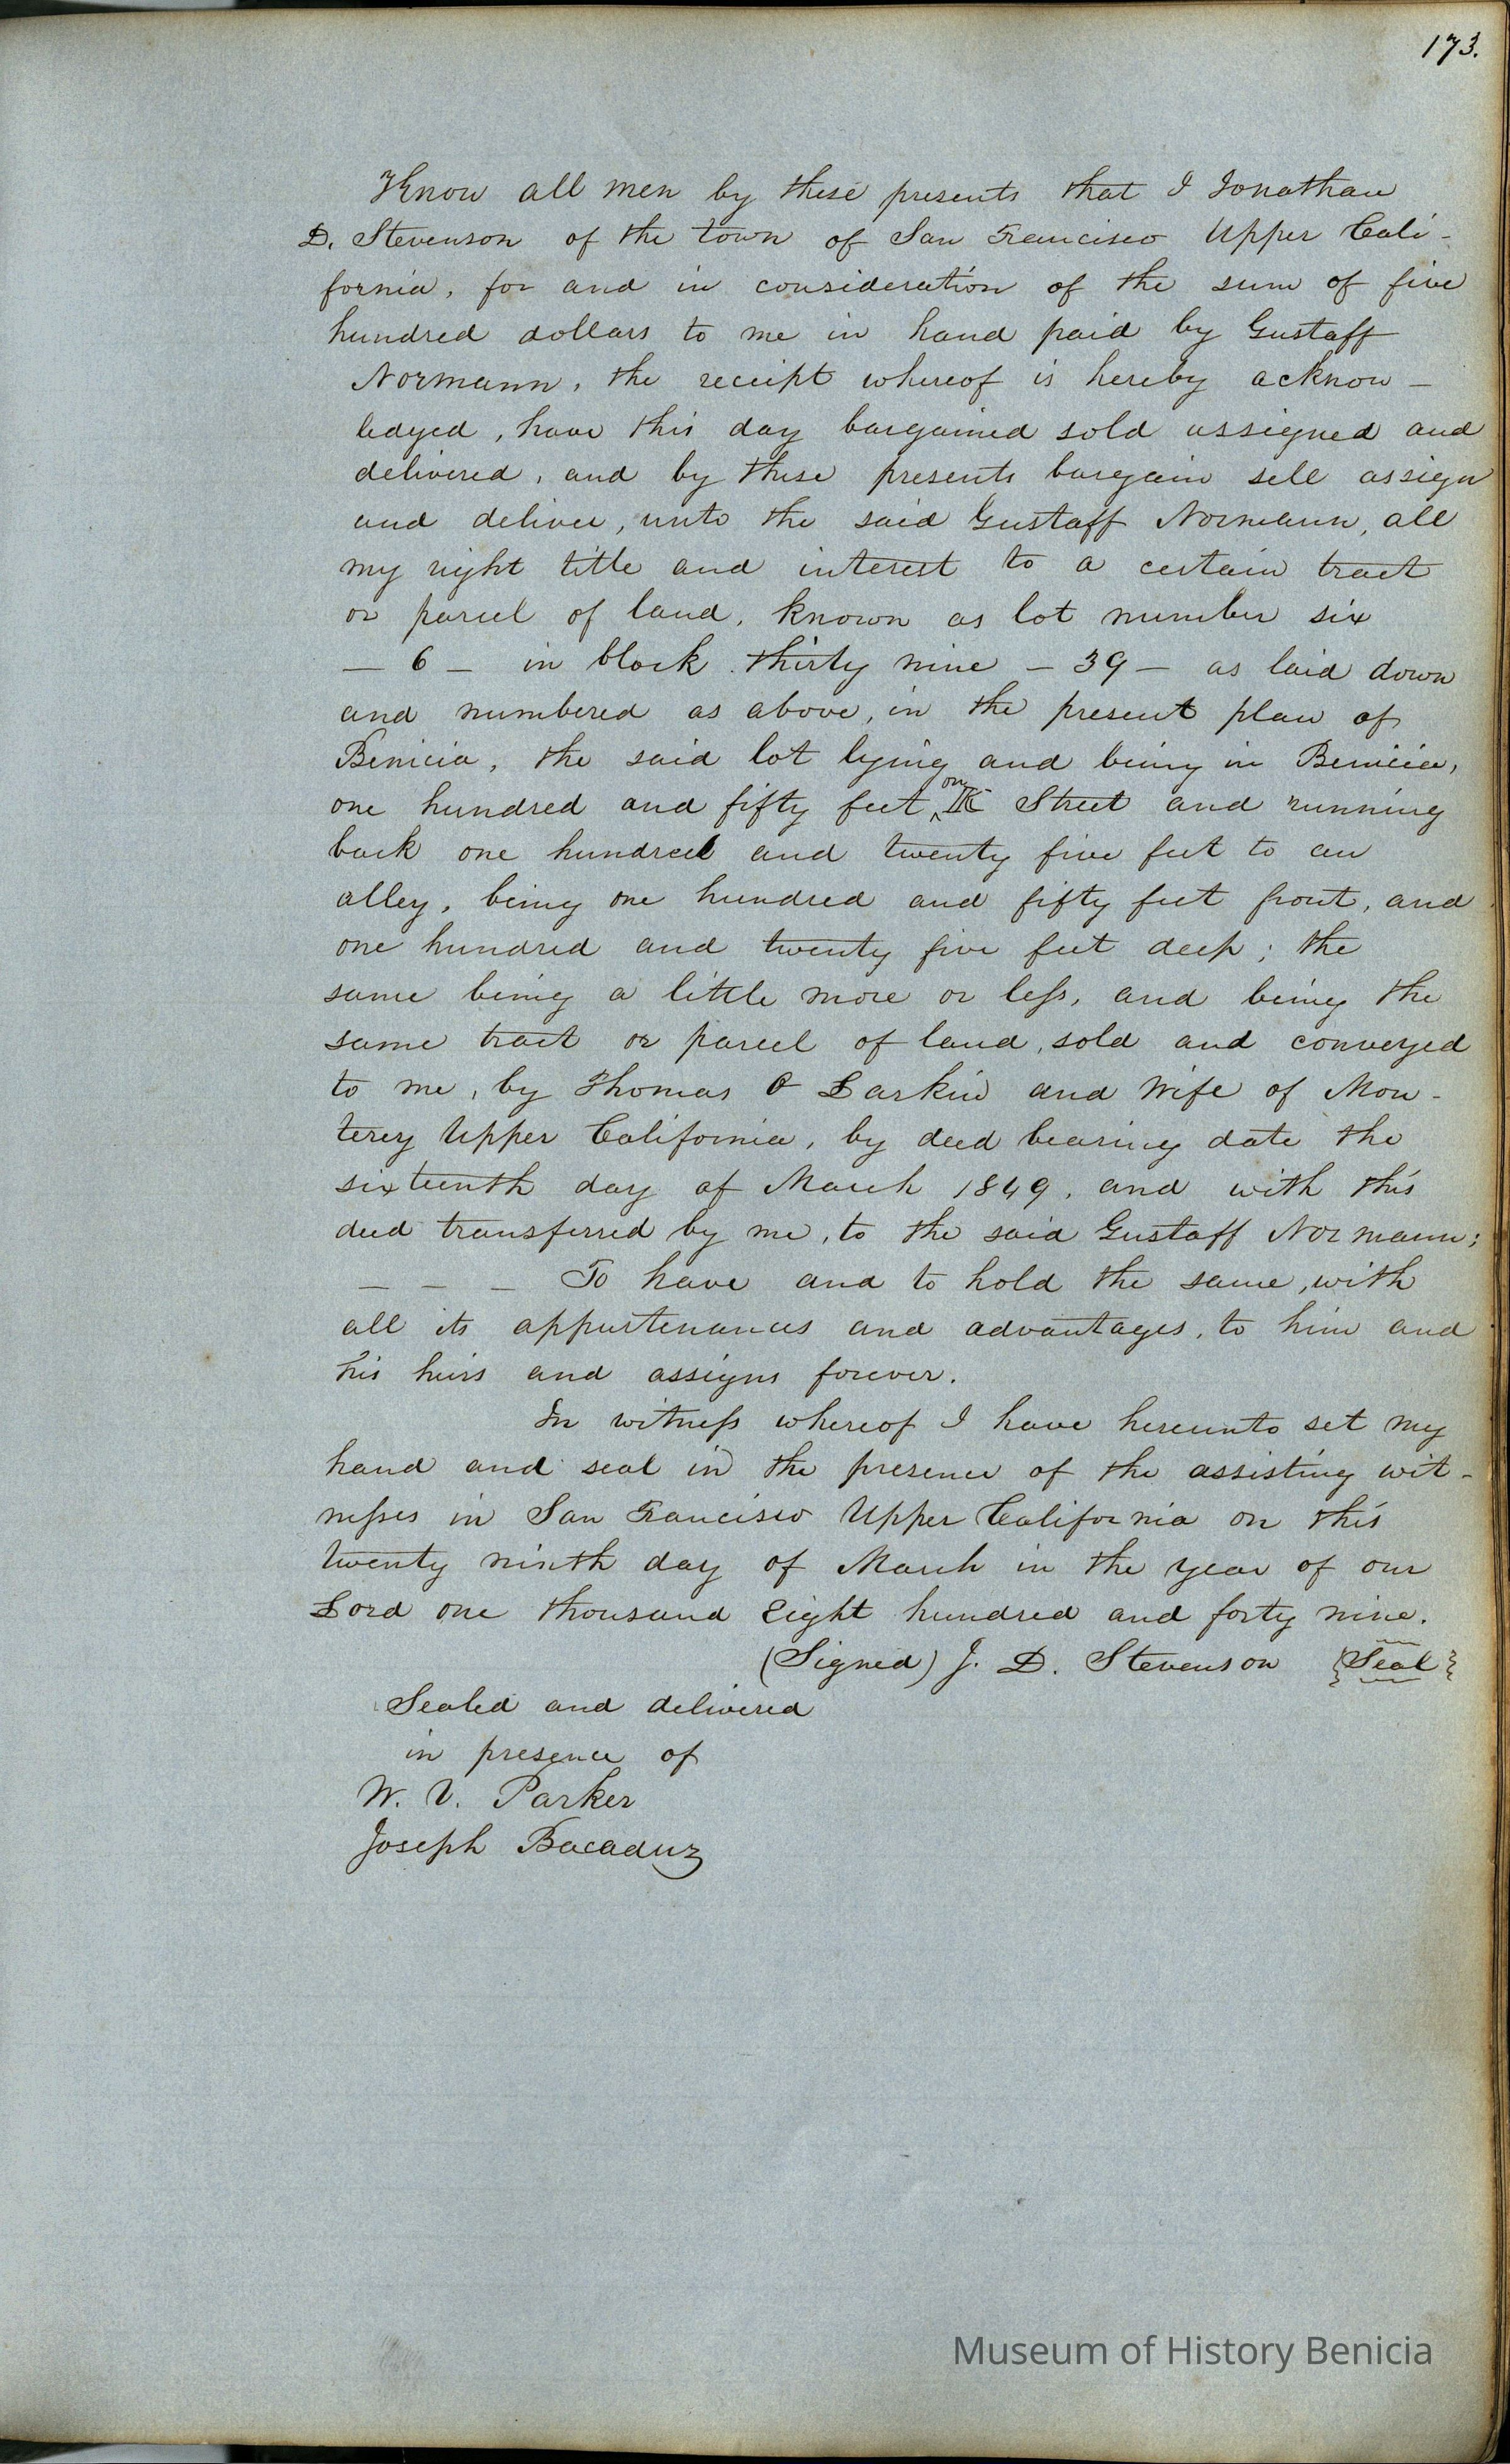 173.
Know all men by these presents that I Jonathan
D. Stevenson of the town of San Francisco Upper Cali-
fornia, for and in consideration of the sum of five
hundred dollars to me in hand paid by Gustaff
Normann, the receipt whereof is hereby acknow-
ledged, have this day bargained sold assigned and
delivered, and by these presents bargain sell assign
and deliver, unto the said Gustaff Normann, all
my right title and interest to a certain tract
or parcel of land, known as lot number six
— 6 — in block thirty nine — 39 — as laid down
and numbered as above, in the present plan of
Benicia, the said lot lying and being in Benicia,
one hundred and fifty feet on K Street and running
back one hundred and twenty five feet to an
alley, being one hundred and fifty feet front, and
one hundred and twenty five feet deep; the
same being a little more or less, and being the
same tract or parcel of land, sold and conveyed
to me, by Thomas O Larkin and Wife of Mon-
terey Upper California, by deed bearing date the
sixteenth day of March 1849, and with this
deed transferred by me, to the said Gustaff Normann;
— — — To have and to hold the same, with
all its appurtenances and advantages, to him and
his heirs and assigns forever.
In witness whereof I have hereunto set my
hand and seal in the presence of the assisting wit-
nesses in San Francisco Upper California on this
twenty ninth day of March in the year of our
Lord one thousand Eight hundred and forty nine.
(Signed) J. D. Stevenson {Seal}
Sealed and delivered
in presence of
W. V. Parker
Joseph
Museum of History Benicia